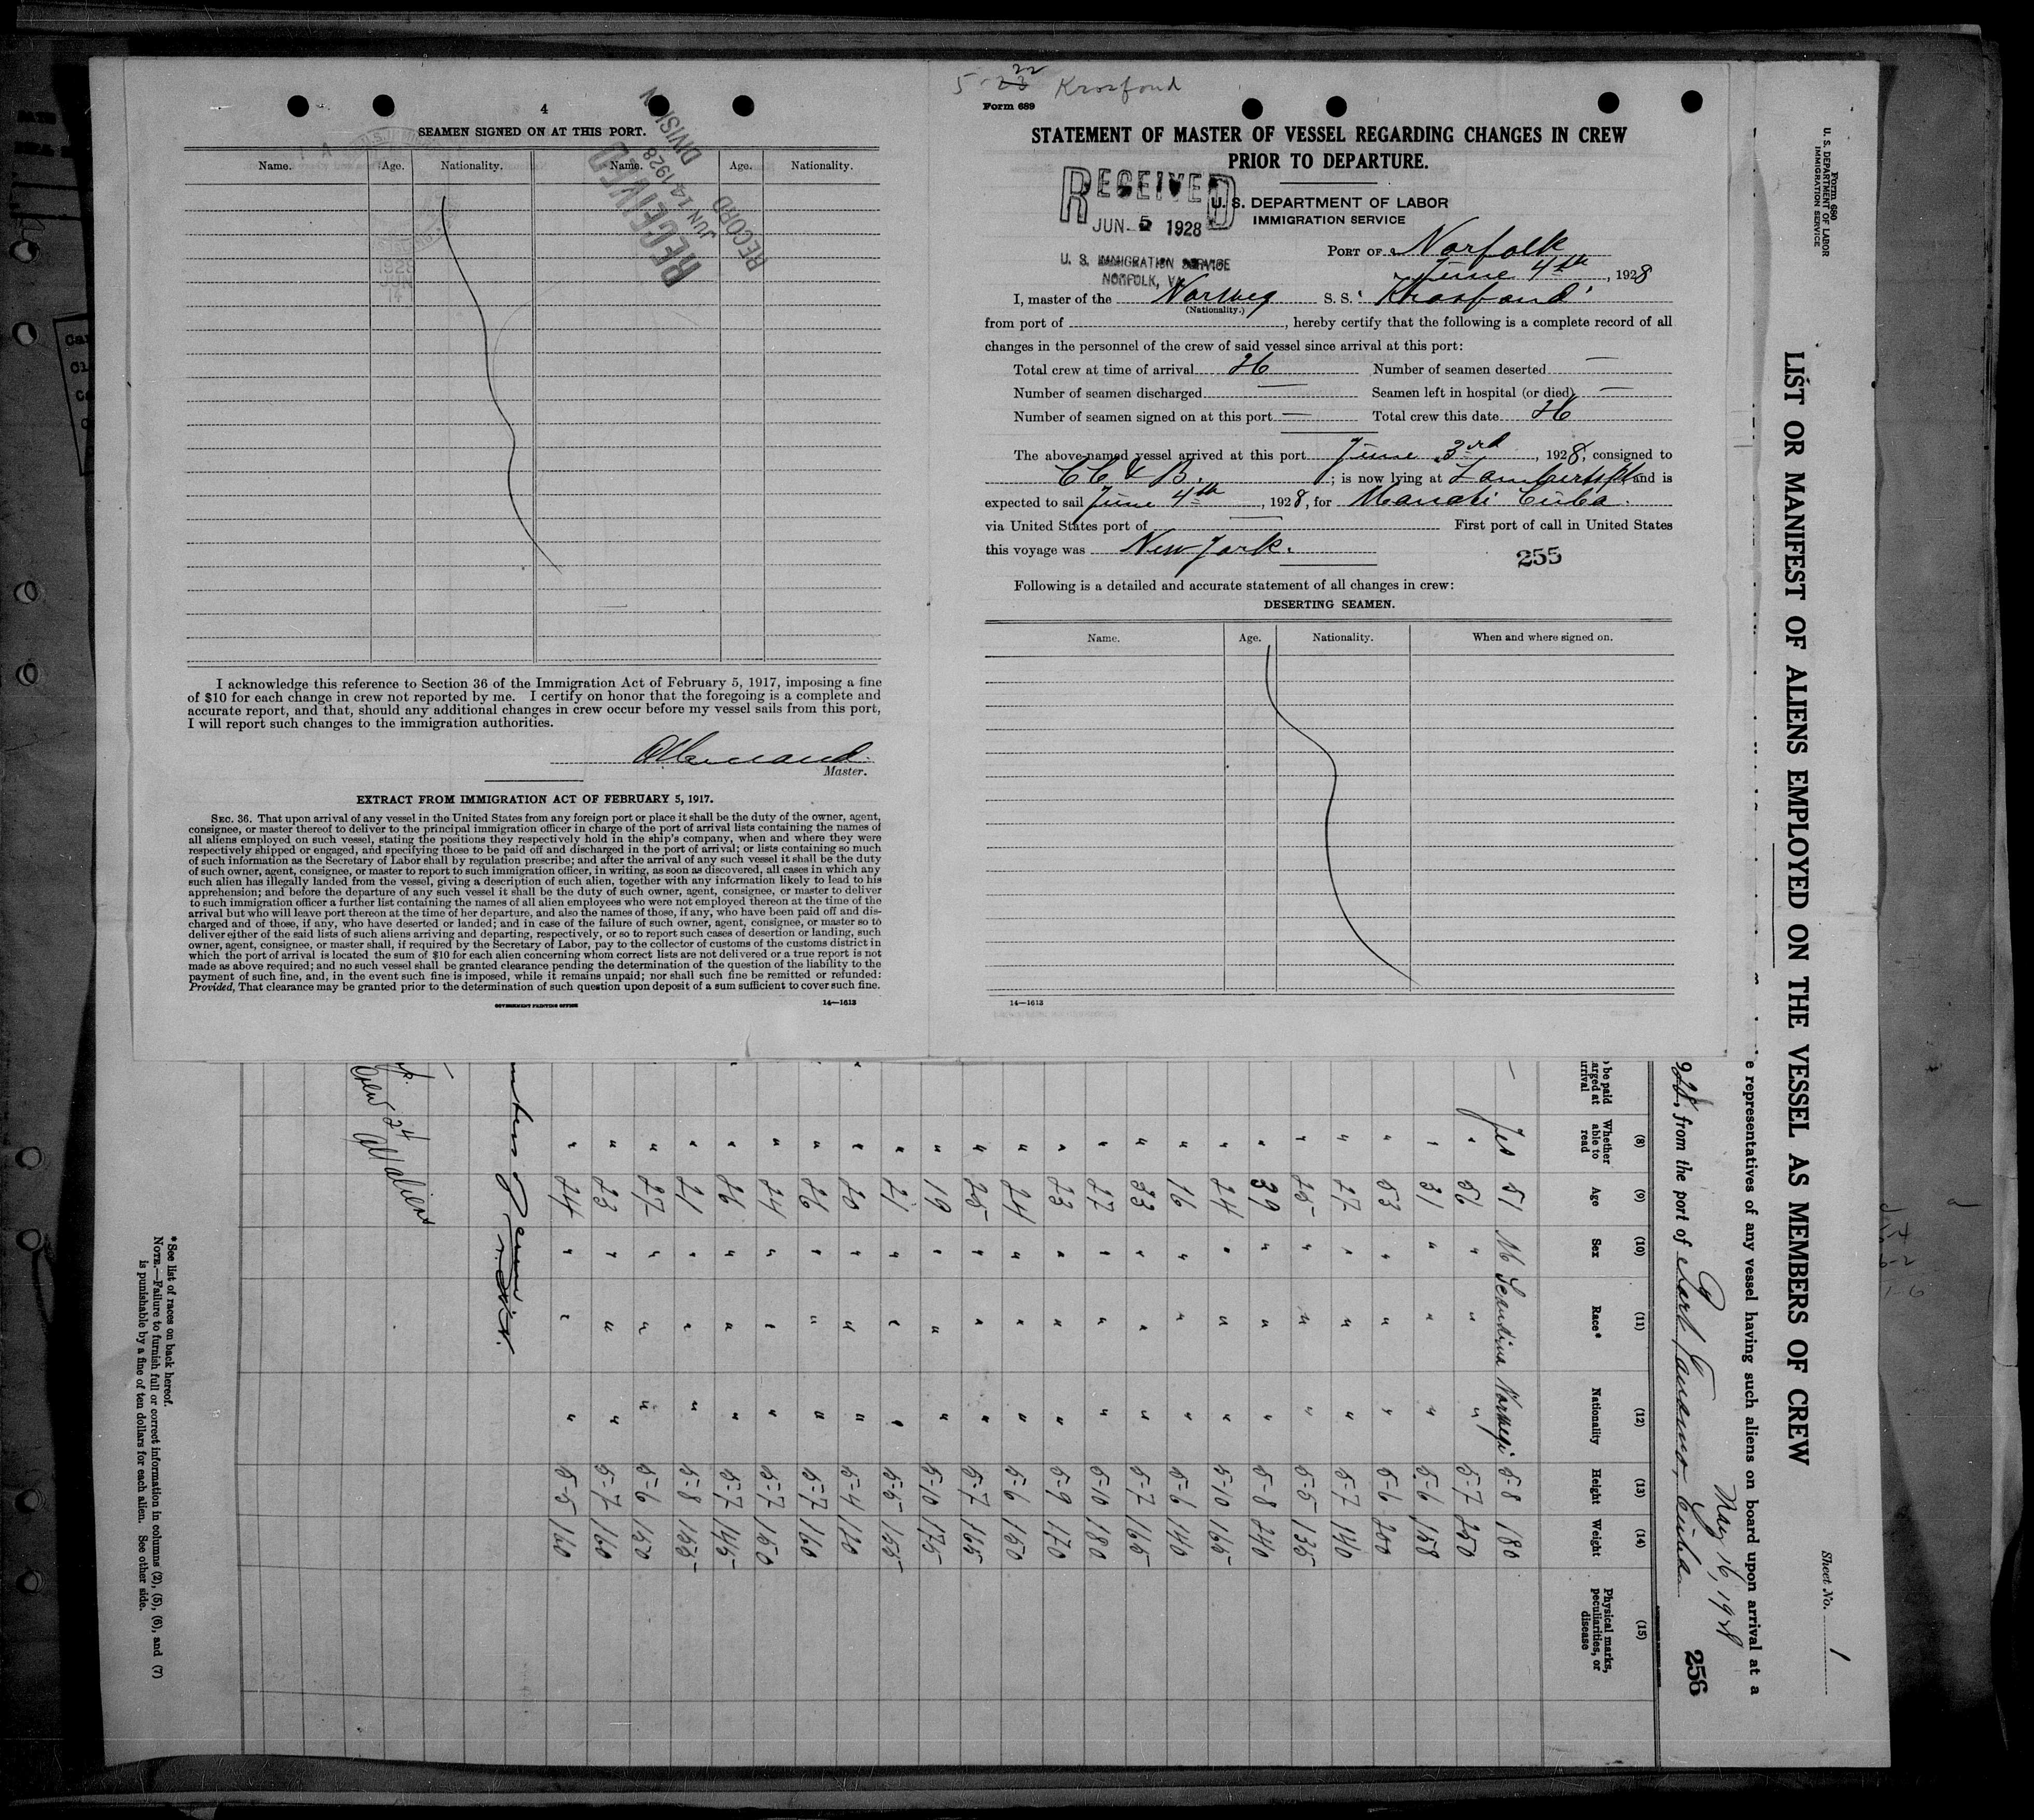 4
SEAMEN SIGNED ON AT THIS PORT.
Name. Age. Nationality. Name. Age. Nationality.
RECEIVED
JUN 14 1928
RECORD DIVISION
I acknowledge this reference to Section 36 of the Immigration Act of February 5, 1917, imposing a fine
of $10 for each change in crew not reported by me. I certify on honor that the foregoing is a complete and
accurate report, and that, should any additional changes in crew occur before my vessel sails from this port,
I will report such changes to the immigration authorities.
Master.
EXTRACT FROM IMMIGRATION ACT OF FEBRUARY 5, 1917.
SEC. 36. That upon arrival of any vessel in the United States from any foreign port or place it shall be the duty of the owner, agent,
consignee, or master thereof to deliver to the principal immigration officer in charge of the port of arrival lists containing the names of
all aliens employed on such vessel, stating the positions they respectively hold in the ship's company, when and where they were
respectively shipped or engaged, and specifying those to be paid off and discharged in the port of arrival; or lists containing so much
of such information as the Secretary of Labor shall by regulation prescribe; and after the arrival of any such vessel it shall be the duty
of such owner, agent, consignee, or master to report to such immigration officer, in writing, as soon as discovered, all cases in which any
such alien has illegally landed from the vessel, giving a description of such alien, together with any information likely to lead to his
apprehension; and before the departure of any such vessel it shall be the duty of such owner, agent, consignee, or master to deliver
to such immigration officer a further list containing the names of all alien employees who were not employed thereon at the time of the
arrival but who will leave port thereon at the time of her departure, and also the names of those, if any, who have been paid off and dis-
charged and of those, if any, who have deserted or landed; and in case of the failure of such owner, agent, consignee, or master so to
deliver either of the said lists of such aliens arriving and departing, respectively, or so to report such cases of desertion or landing, such
owner, agent, consignee, or master shall, if required by the Secretary of Labor, pay to the collector of customs of the customs district in
which the port of arrival is located the sum of $10 for each alien concerning whom correct lists are not delivered or a true report is not
made as above required; and no such vessel shall be granted clearance pending the determination of the question of the liability to the
payment of such fine, and, in the event such fine is imposed, while it remains unpaid; nor shall such fine be remitted or refunded:
Provided, That clearance may be granted prior to the determination of such question upon deposit of a sum sufficient to cover such fine.
GOVERNMENT PRINTING OFFICE 14—1613
5-22 Krosfond
Form 689
STATEMENT OF MASTER OF VESSEL REGARDING CHANGES IN CREW
PRIOR TO DEPARTURE.
RECEIVED
JUN 5 1928
U. S. IMMIGRATION SERVICE
NORFOLK, VA.
U. S. DEPARTMENT OF LABOR
IMMIGRATION SERVICE
PORT OF Norfolk
June 4th, 1928
I, master of the Norweg S. S. Krosfond
(Nationality.)
from port of , hereby certify that the following is a complete record of all
changes in the personnel of the crew of said vessel since arrival at this port:
Total crew at time of arrival 26 Number of seamen deserted —
Number of seamen discharged — Seamen left in hospital (or died) —
Number of seamen signed on at this port — Total crew this date 26
The above-named vessel arrived at this port June 3rd, 1928, consigned to
CC & B. ; is now lying at Lamberts Pt and is
expected to sail June 4th, 1928, for Manati Cuba.
via United States port of — First port of call in United States
this voyage was New York.
255
Following is a detailed and accurate statement of all changes in crew:
DESERTING SEAMEN.
Name. Age. Nationality. When and where signed on.
14—1613
Form 680
U. S. DEPARTMENT OF LABOR
IMMIGRATION SERVICE
Sheet No. 1
LIST OR MANIFEST OF ALIENS EMPLOYED ON THE VESSEL AS MEMBERS OF CREW
representatives of any vessel having such aliens on board upon arrival at a
May 16, 1928
from the port of Port Tanamo, Cuba
256
(8) (9) (10) (11) (12) (13) (14) (15)
Whether able to read Age Sex Race* Nationality Height Weight Physical marks, peculiarities, or disease
Yes 51 M Scandina Norwegi 5-8 180
" 56 " " " 5-7 200
" 31 " " " 5-6 158
" 53 " " " 5-6 200
" 27 " " " 5-7 140
" 25 " " " 5-5 135
" 39 " " " 5-8 240
" 24 " " " 5-10 165
" 16 " " " 5-6 140
" 33 " " " 5-7 165
" 27 " " " 5-10 180
" 23 " " " 5-9 170
" 24 " " " 5-6 150
" 25 " " " 5-7 165
" 19 " " " 5-10 175
" 21 " " " 5-5 155
" 20 " " " 5-4
" 26 " " " 5-7 160
" 24 " " " 5-7 150
" 26 " " " 5-7 145
" 21 " " " 5-8 155
" 27 " " " 5-6 150
" 23 " " " 5-7 160
" 24 " " " 5-5 160
* See list of races on back hereof.
NOTE.—Failure to furnish full or correct information in columns (2), (5), (6), and (7)
is punishable by a fine of ten dollars for each alien. See other side.